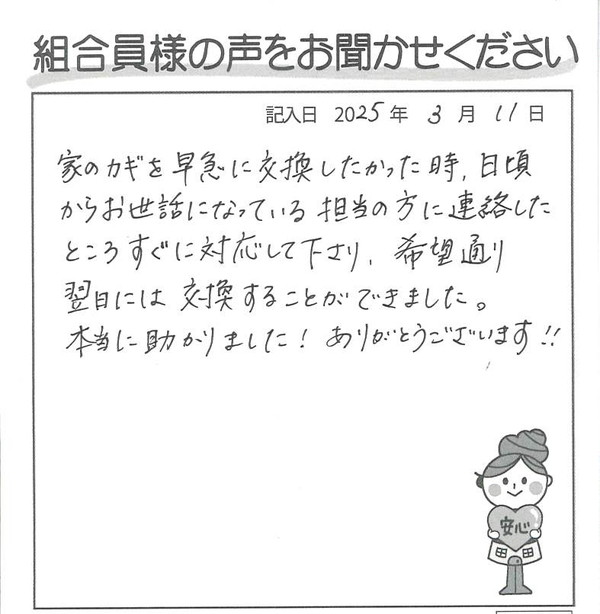 組合員様の声をお聞かせください
記入日 2025年 3月 11日
家のカギを早急に交換したかった時、日頃
からお世話になっている担当の方に連絡した
ところすぐに対応して下さり、希望通り
翌日には交換することができました。
本当に助かりました！ありがとうございます!!
安心